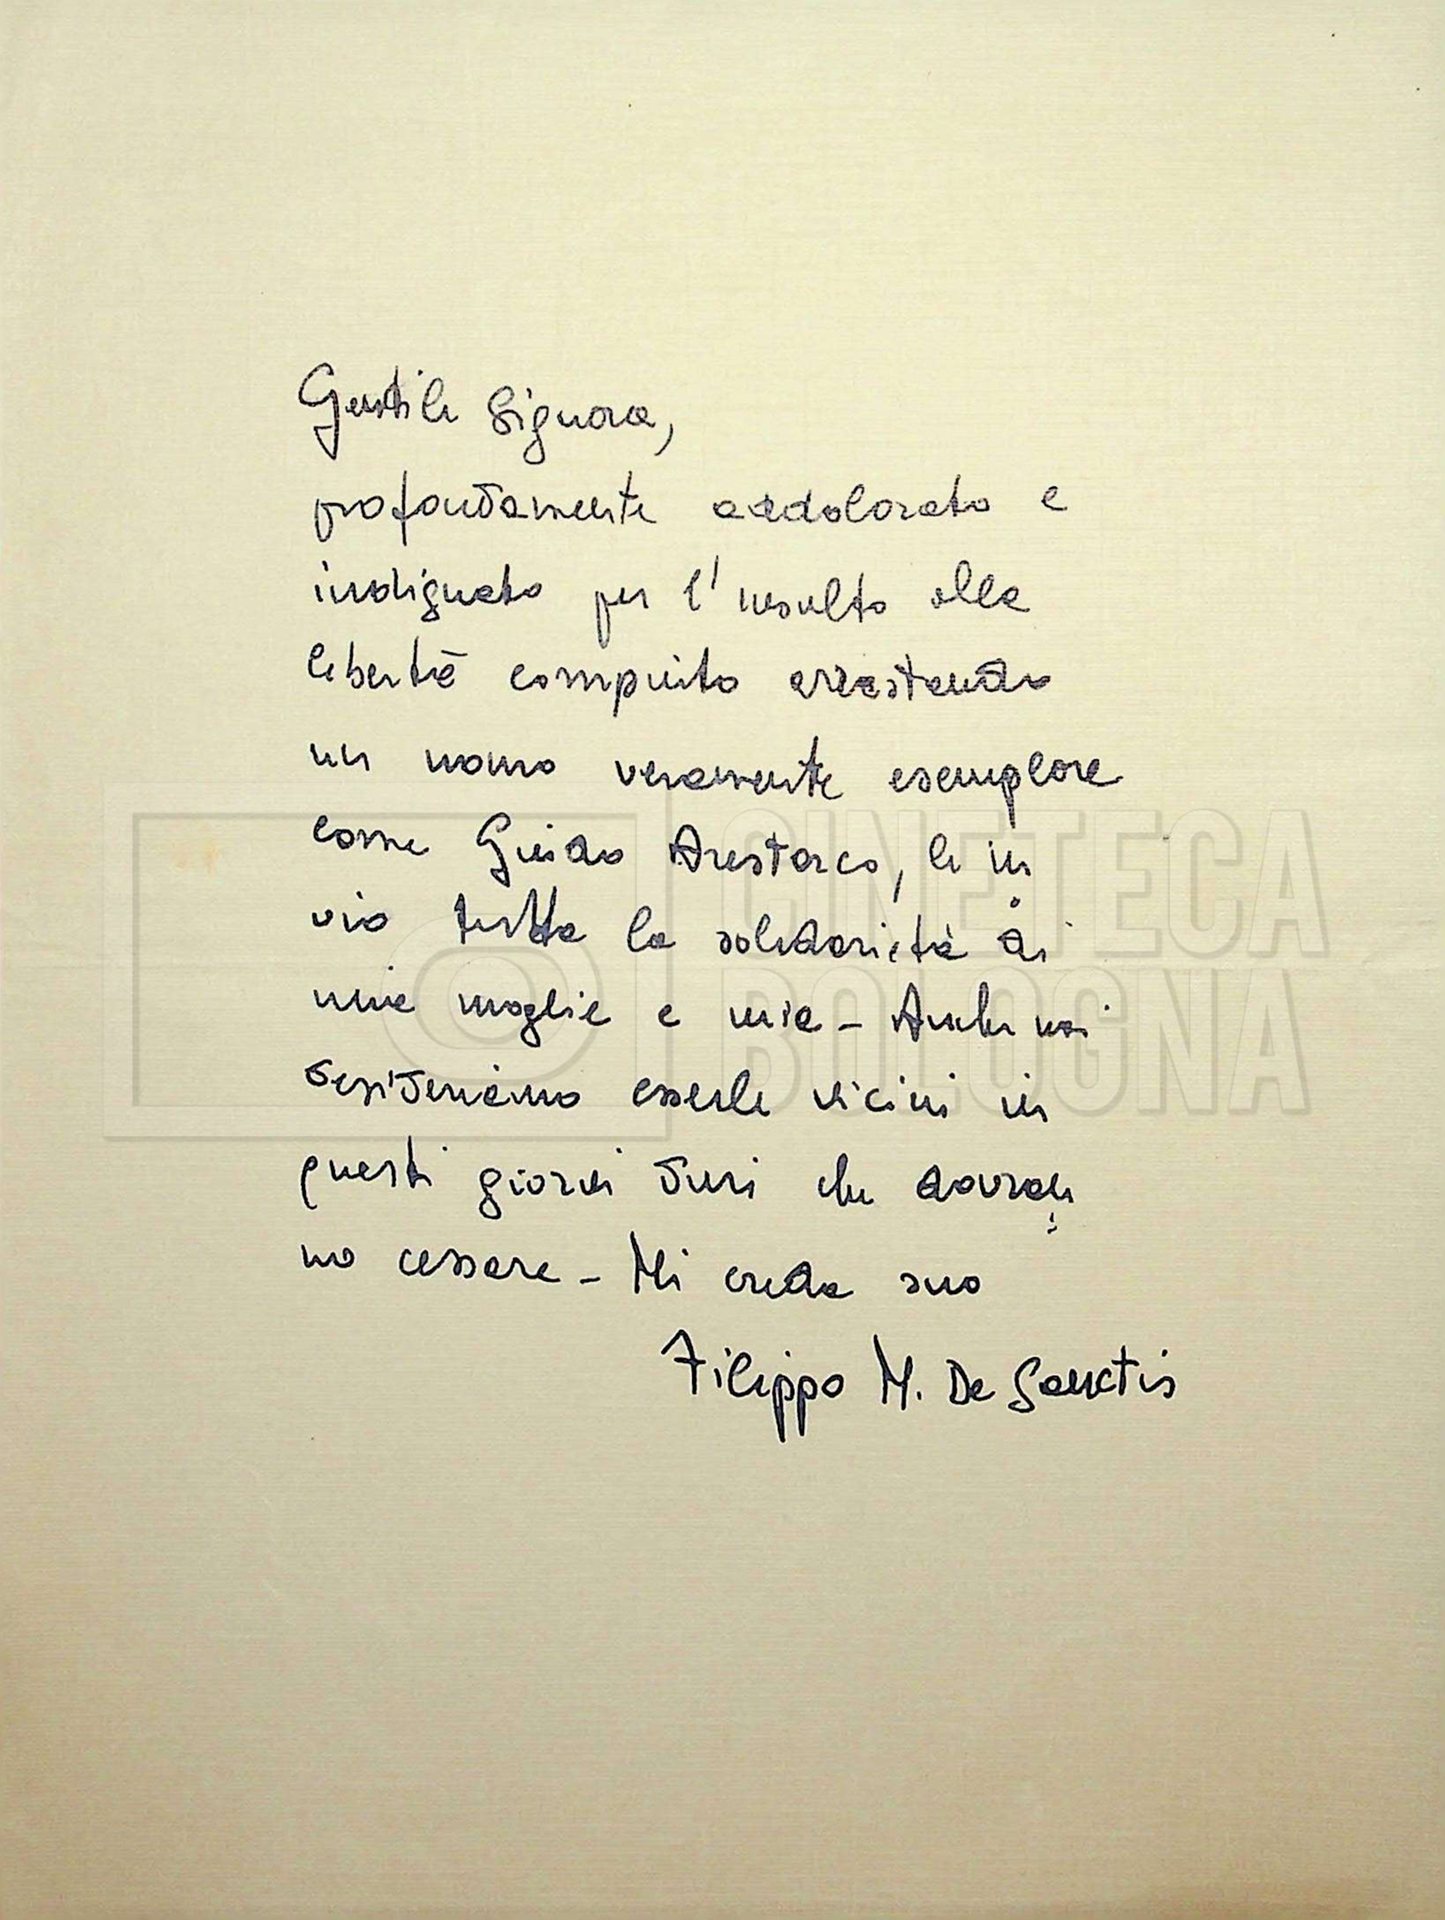 Gentile Signora,
profondamente addolorato e
indignato per l'insulto alla
libertà compiuto arrestando
un uomo veramente esemplare
come Guido Aristarco, le in
vio tutta la solidarietà di
mia moglie e mia – Anche noi
desideriamo esserle vicini in
questi giorni duri che dovran
no cessare – Mi creda suo
Filippo M. De Sanctis
CINETECA
BOLOGNA